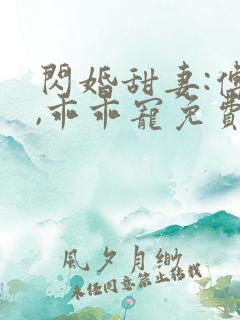 閃婚甜妻:傅
,乖乖寵免費
風夕月緲
未经同意禁止转载